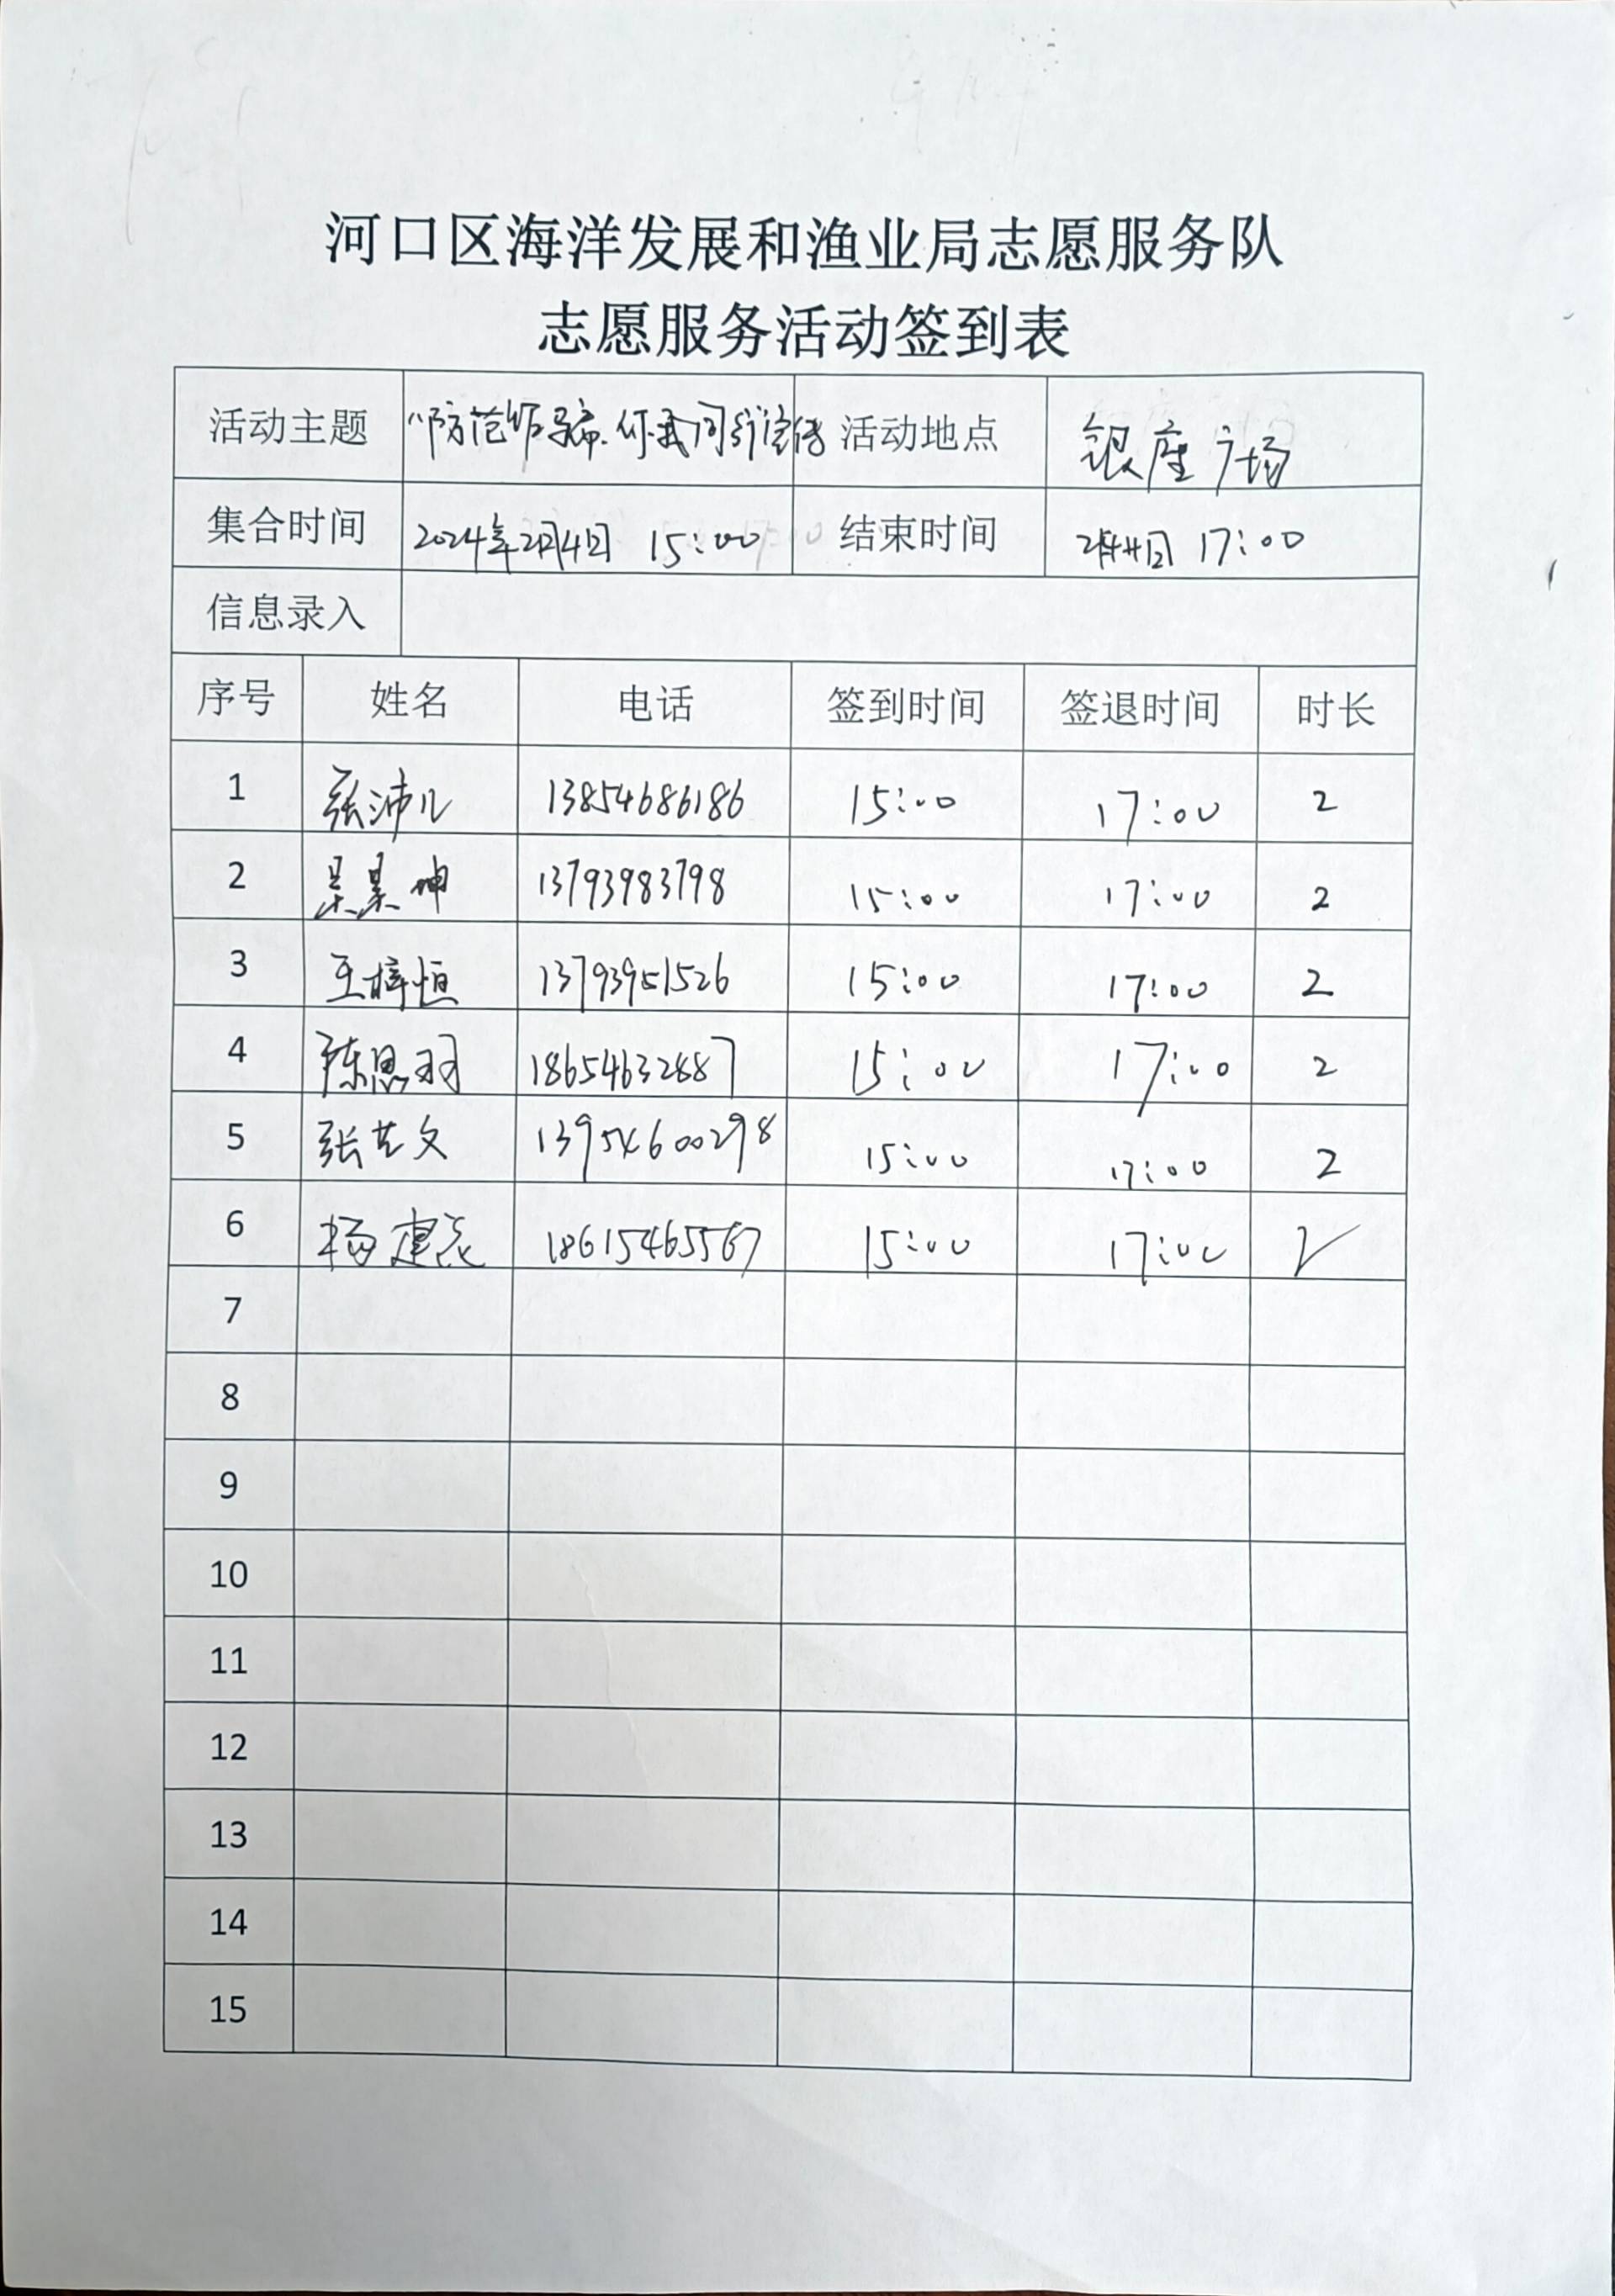 河口区海洋发展和渔业局志愿服务队
志愿服务活动签到表
活动主题 "防范诈骗.你我同行宣传 活动地点 银座广场
集合时间 2024年2月4日 15:00 结束时间 2月4日 17:00
信息录入
序号 姓名 电话 签到时间 签退时间 时长
1 张沛儿 13854686186 15:00 17:00 2
2 13793983798 15:00 17:00 2
3 王梓恒 13793951526 15:00 17:00 2
4 陈思羽 18654632887 15:00 17:00 2
5 张艺文 13954600298 15:00 17:00 2
6 杨建 18615465567 15:00 17:00 2
7
8
9
10
11
12
13
14
15